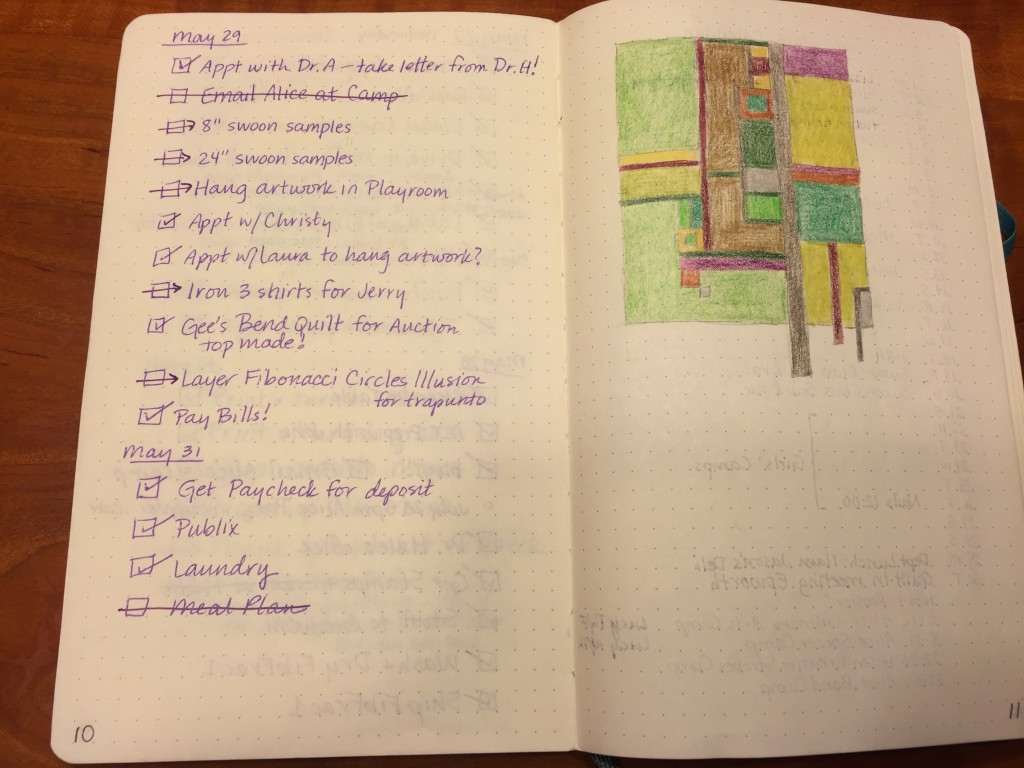 May 29
Appt with Dr. A – take letter from Dr. H!
Email Alice at Camp
8" swoon samples
24" swoon samples
Hang artwork in Playroom
Appt w/ Christy
Appt w/ Laura to hang artwork?
Iron 3 shirts for Jerry
Gee's Bend Quilt for Auction
top made!
Layer Fibonacci Circles Illusion
for trapunto
Pay Bills!
May 31
Get Paycheck for deposit
Publix
Laundry
Meal Plan
10
11